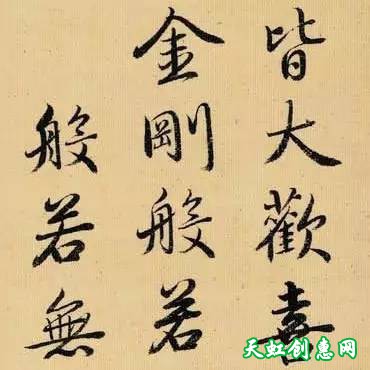 皆大歡喜
金剛般若
般若無
天虹创意网